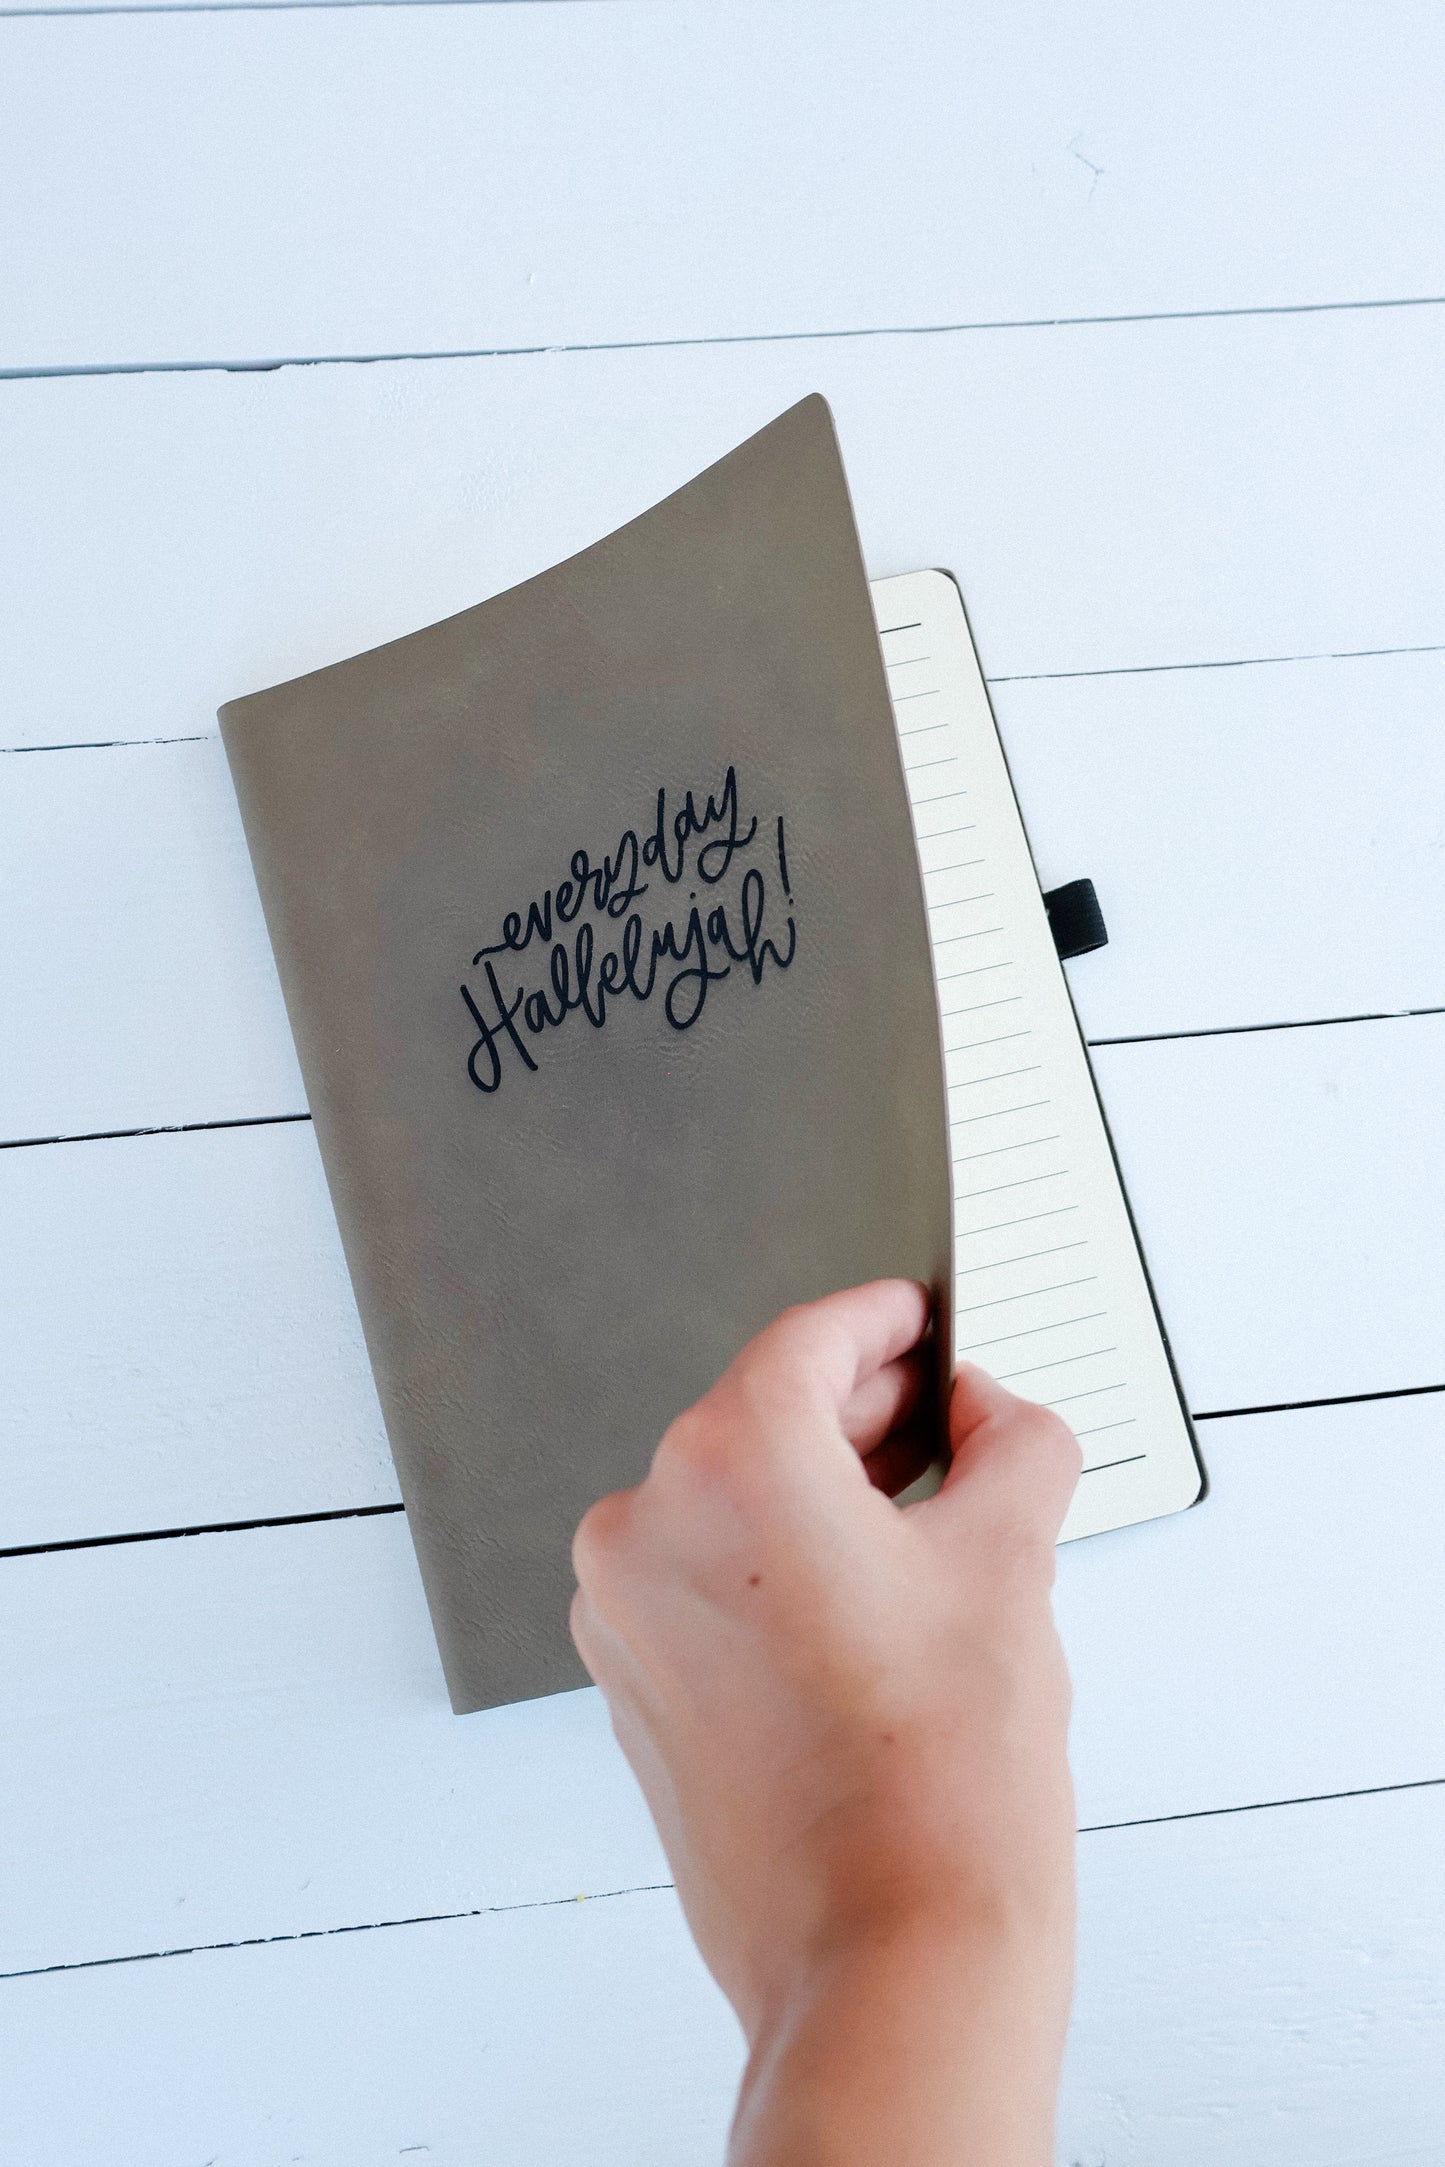 everyday
Hallelujah!